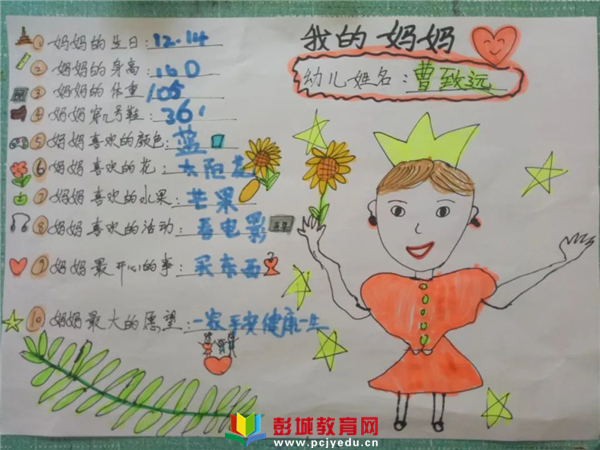 我的妈妈
幼儿姓名：曹致远
①妈妈的生日：12.14
②妈妈的身高：160
③妈妈的体重：105
④妈妈穿几号鞋：36
⑤妈妈喜欢的颜色：蓝
⑥妈妈喜欢的花：太阳花
⑦妈妈喜欢的水果：芒果
⑧妈妈喜欢的活动：看电影
⑨妈妈最开心的事：买东西
⑩妈妈最大的愿望：一家平安健康一生
彭城教育网
www.pcjyedu.cn